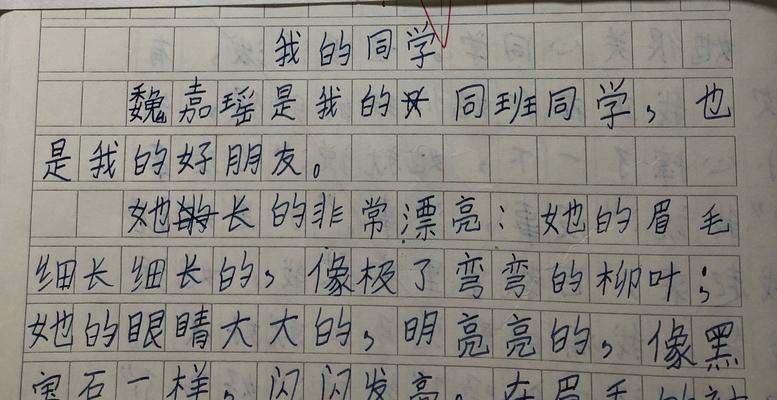 我的同学
魏嘉瑶是我的同班同学，也
是我的好朋友。
她长的非常漂亮：她的眉毛
细长细长的，像极了弯弯的柳叶；
她的眼睛大大的，明亮亮的，像黑
宝石一样，闪闪发亮。在眉毛的